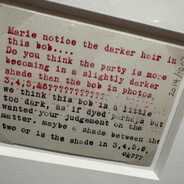 Marie notice the darker hair in
this bob....
Do you think the party is more
becoming in a slightly darker
shade than the bob in photos
3,4,5,&6?????????????
we think this bob is a little
too dark, as if dyed perhaps but
wanted your judgement on the
matter. maybe a shade between the
two or is the shade in 3,4,5,6,
ok???
2014/10